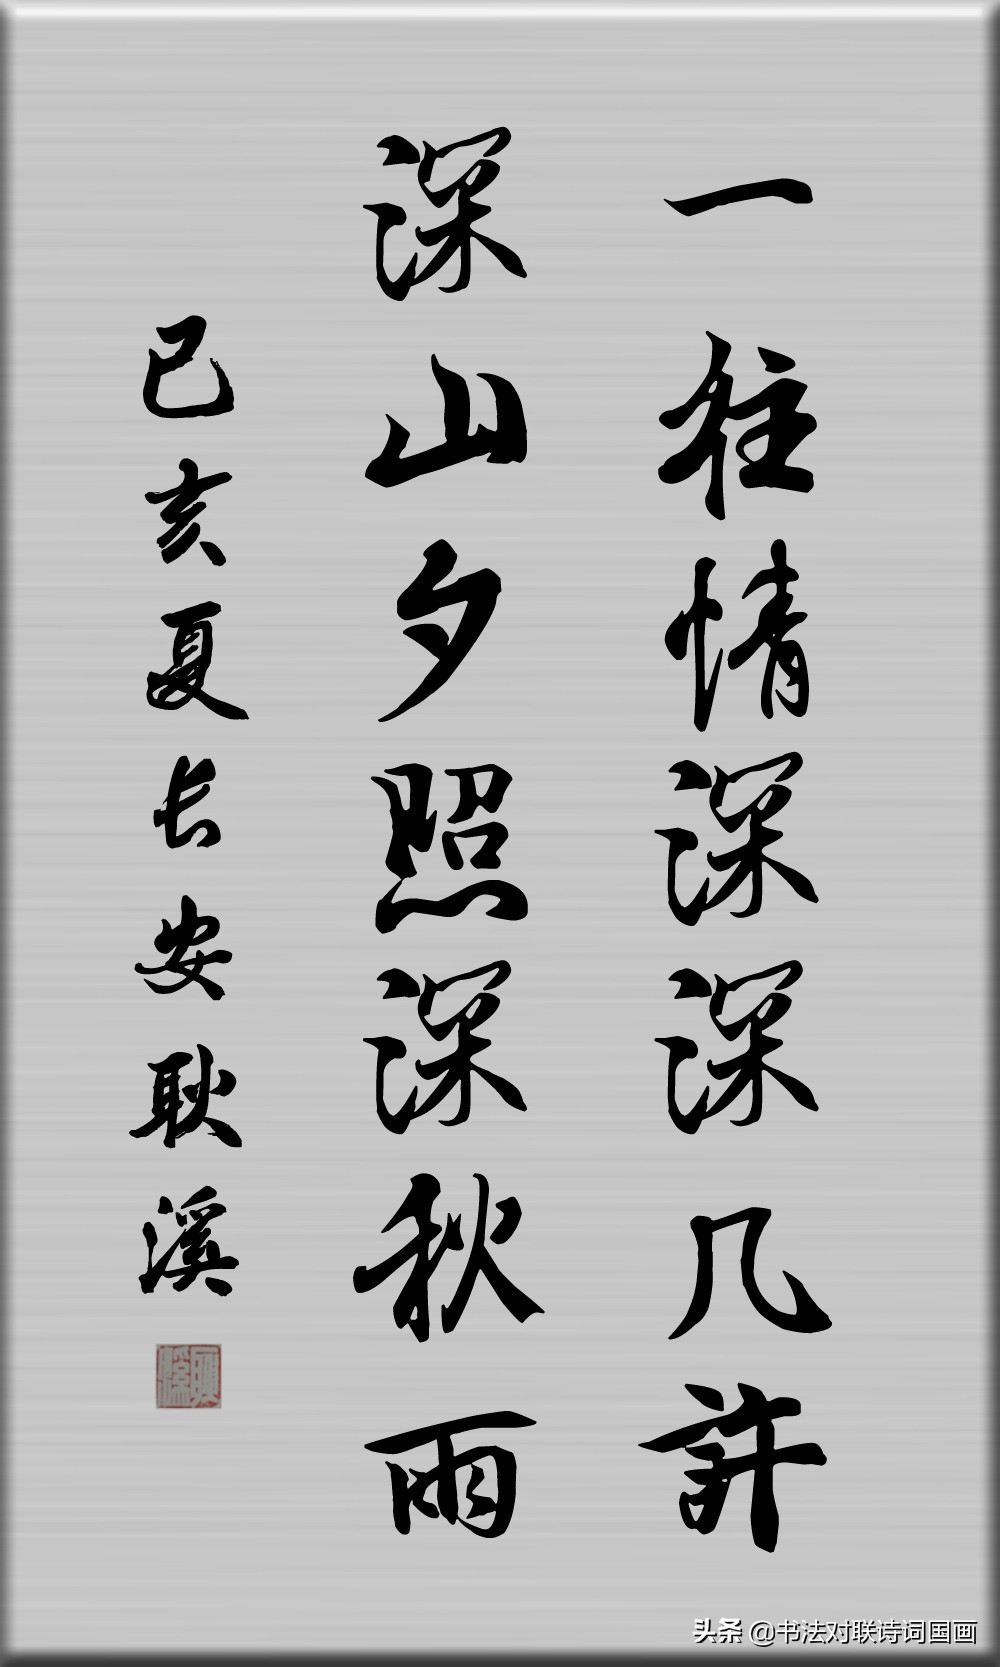 一往情深深几許
深山夕照深秋雨
己亥夏长安耿溪
耿溪
头条 @书法对联诗词国画